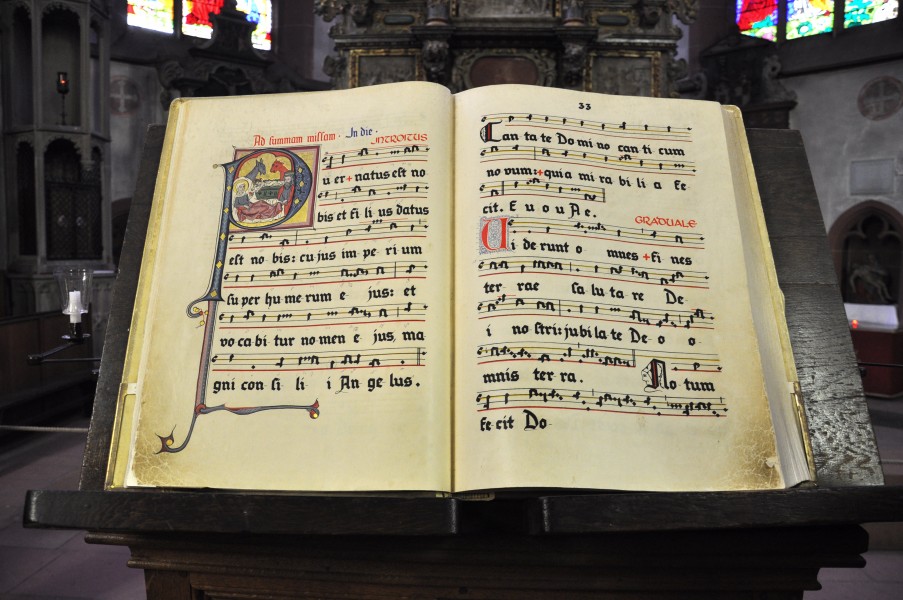 Ad summam missam · In die ·
INTROITUS
Pu er + natus est no
bis et fi li us datus
est no bis: cu jus im pe ri um
su per hu me rum e jus: et
vo ca bi tur no men e jus, ma
gni con si li i An ge lus.
33
Can ta te Do mi no can ti cum
no vum: + quia mi ra bi li a fe
cit. E u o u A e.
GRADUALE
Vi de runt o mnes + fi nes
ter rae sa lu ta re De
i no stri: ju bi la te De o o
mnis ter ra. No tum
fe cit Do